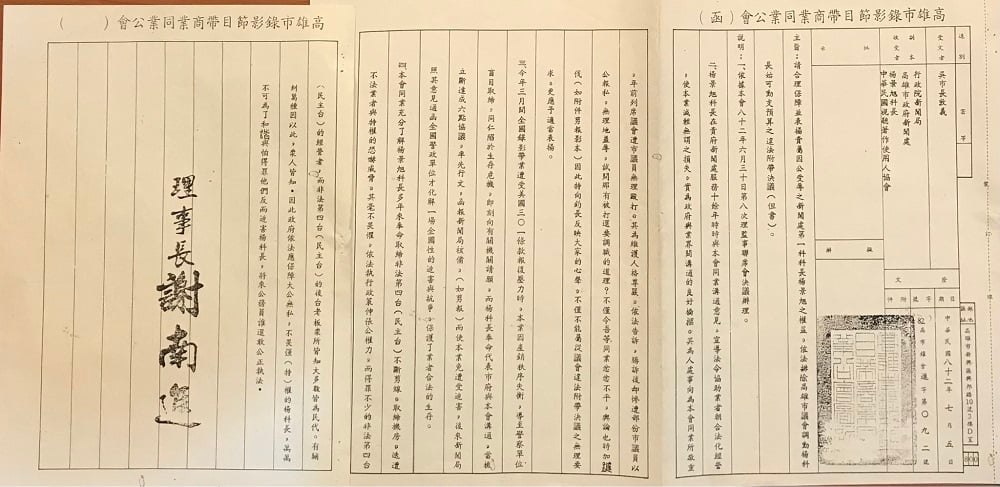 高雄市錄影節目帶商業同業公會（函）
會址
高雄市新興區興邦路10巷3樓D室
800
速別
密等
受文者
吳市長敦義
副本收受者
行政院新聞局
高雄市政府新聞處
楊景旭科長
中華民國視聽著作使用人協會
批示
擬辦
發文
日期
中華民國八十二年七月五日
字號
附件
主旨：請合理保障並表揚貴屬因公受辱之新聞處第一科科長楊景旭之權益。依法排除高雄市議會調動楊科
長始可動支預算之違法附帶決議（但書）。
說明：一、依據本會八十二年六月三十日第八次理監事聯席會決議辦理。
二、楊景旭科長在貴府新聞處服務十餘年時時與本會同業溝通意見，宣導法令協助業者朝合法化經營
，使本業減輕無謂之損失。實為政府與業界間溝通的良好橋樑。其為人處事向為本會同業所敬重
，年前列席議會遭市議員無理毆打。其為維護人格尊嚴。依法告訴，勝訴後却慘遭部份市議員以
公報私，無理地羞辱，試問那有被打還要調職的道理？不僅令吾等同業忿忿不平，輿論也時加譴
伐（如附件剪報影本）因此特向鈞長反映大家的心聲。不僅不能屬從議會違法附帶決議之無理要
求。更應予適當表揚。
三、今年三月間全國錄影帶業遭受美國三〇一條款報復壓力時，本業因產銷秩序失衡，導至警察單位
盲目取締，同仁陷於生存危機。即刻向有關機關請願。而楊科長奉命代表市府與本會溝通，當機
立斷達成六點協議，率先行文，函報新聞局核備，（如剪報）而使本業免遭受迫害，後來新聞局
照其意見通函全國警政單位才化解一場全國性的迫害與抗爭，保護了業者合法的生存。
四、本會同業充分了解楊景旭科長多年來奉命取締非法第四台（民主台）不斷剪線、取締機房，迭遭
不法業者與特權的恐嚇威脅，其毫不畏懼，依法執行政策伸張公權力。而得罪不少的非法第四台
（民主台）的經營者，而非法第四台（民主台）的後台老板眾所皆知大多數皆為民代。有關
糾葛種因以此，眾人皆知。因此政府依法應保障大公無私，不畏強（特）權的楊科長，萬萬
不可為了和諧與怕得罪他們反而迫害楊科長，將來公務員誰還敢公正執法。
理事長謝南選